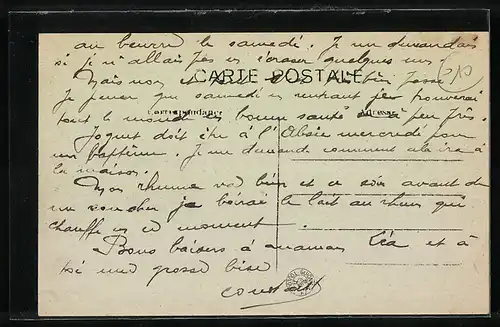 au beurre le samedi. Je me demandais
si je n'allais pas en écraser quelques uns.
Mais non et tout s'est très bien passé
CARTE POSTALE
Je pense que samedi en rentrant je trouverai
Correspondance Adresse
tout le monde en bonne santé à peu près.
Joguet doit être à l'Absie mercredi pour
un baptême. Je me demande comment cela ira à
la maison.
Mon rhume va bien et ce soir avant de
me coucher je boirai le lait au rhum qui
chauffe en ce moment.
Bons baisers à maman Léa et à
toi une grosse bise